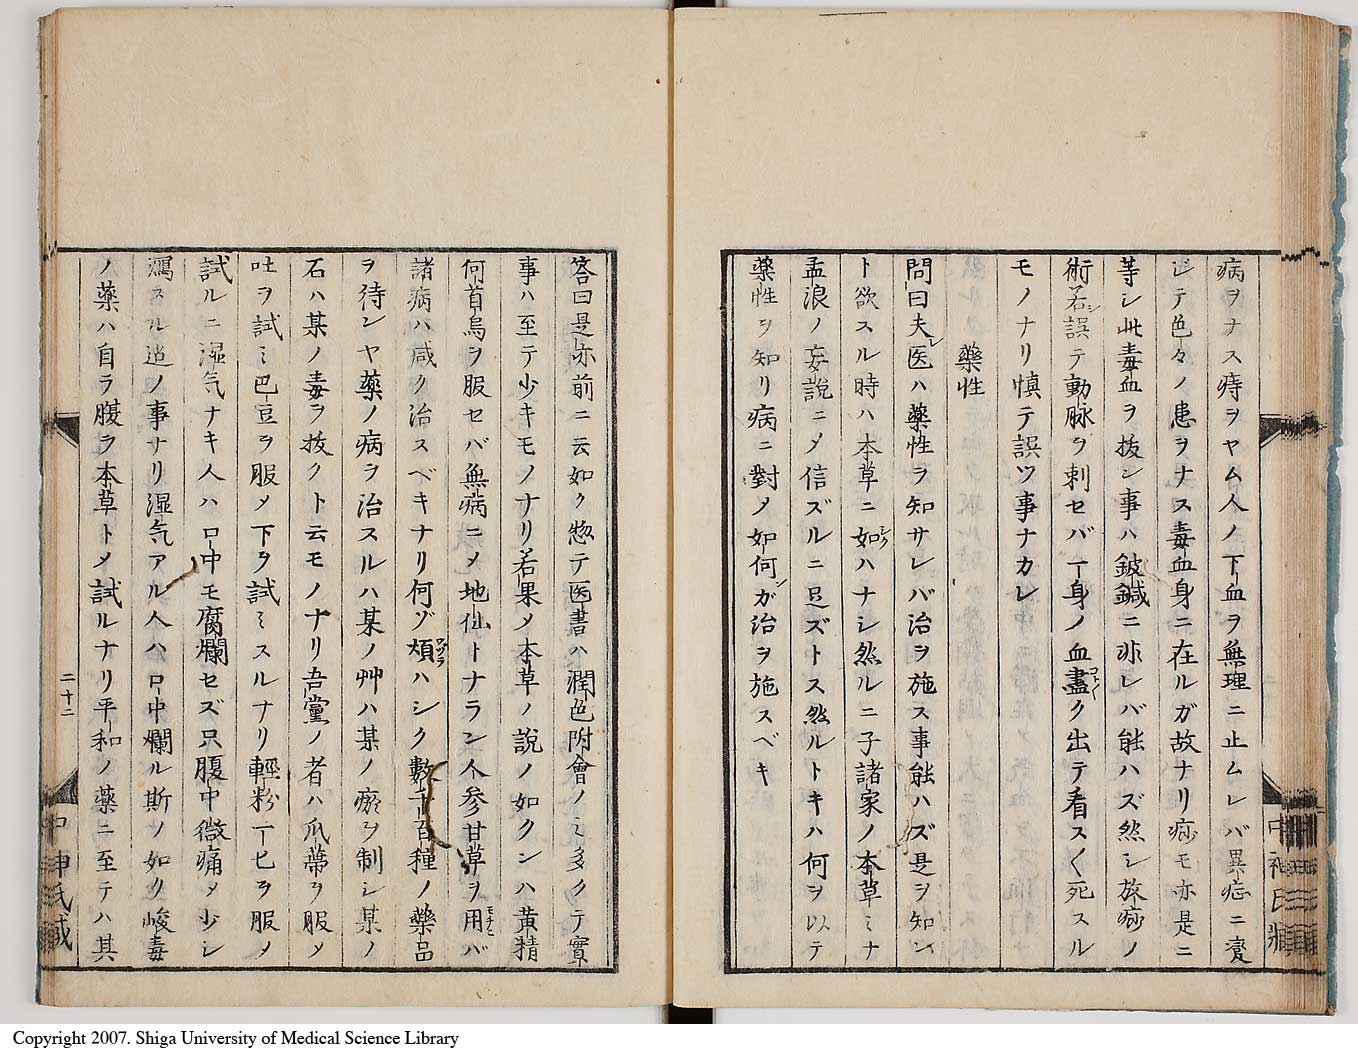 病ヲナス痔ヲヤム人ノ下血ヲ無理ニ止ムレバ異症ニ変
ジテ色々ノ患ヲナス毒血身ニ在ルガ故ナリ痧モ亦是ニ
等シ此毒血ヲ抜ン事ハ鈹鍼ニ非レバ能ハズ然シ放痧ノ
術若シ誤テ動脉ヲ刺セバ一身ノ血盡ク出テ看ス〱死スル
モノナリ慎テ誤ツ事ナカレ
藥性
問曰夫レ医ハ藥性ヲ知サレバ治ヲ施ス事能ハズ是ヲ知ン
ト欲スル時ハ本草ニ如クハナシ然ルニ子諸家ノ本草ミナ
孟浪ノ妄説ニメ信ズルニ足ズトス然ルトキハ何ヲ以テ
藥性ヲ知リ病ニ對メ如何ンガ治ヲ施スベキ
答曰是亦前ニ云如ク惣テ医書ハ潤色附會ノミ多クテ實
事ハ至テ少キモノナリ若果メ本草ノ説ノ如クンハ黄精
何首烏ヲ服セバ無病ニメ地仙トナラン人参甘草ヲ用バ
諸病ハ咸ク治スベキナリ何ゾ煩ハシク數千百種ノ藥品
ヲ待ンヤ藥ノ病ヲ治スルハ某ノ艸ハ某ノ瘀ヲ制シ某ノ
石ハ某ノ毒ヲ抜クト云モノナリ吾黨ノ者ハ瓜蔕ヲ服メ
吐ヲ試ミ巴豆ヲ服メ下ヲ試ミスルナリ輕粉一匕ヲ服メ
試ルニ湿気ナキ人ハ口中モ腐爛セズ只腹中微痛メ少シ
瀉スル迠ノ事ナリ湿気アル人ハ口中爛ル斯ノ如ク峻毒
ノ藥ハ自ラ腹ヲ本草トメ試ルナリ平和ノ藥ニ至テハ其
二十二
中神氏藏
Copyright 2007. Shiga University of Medical Science Library